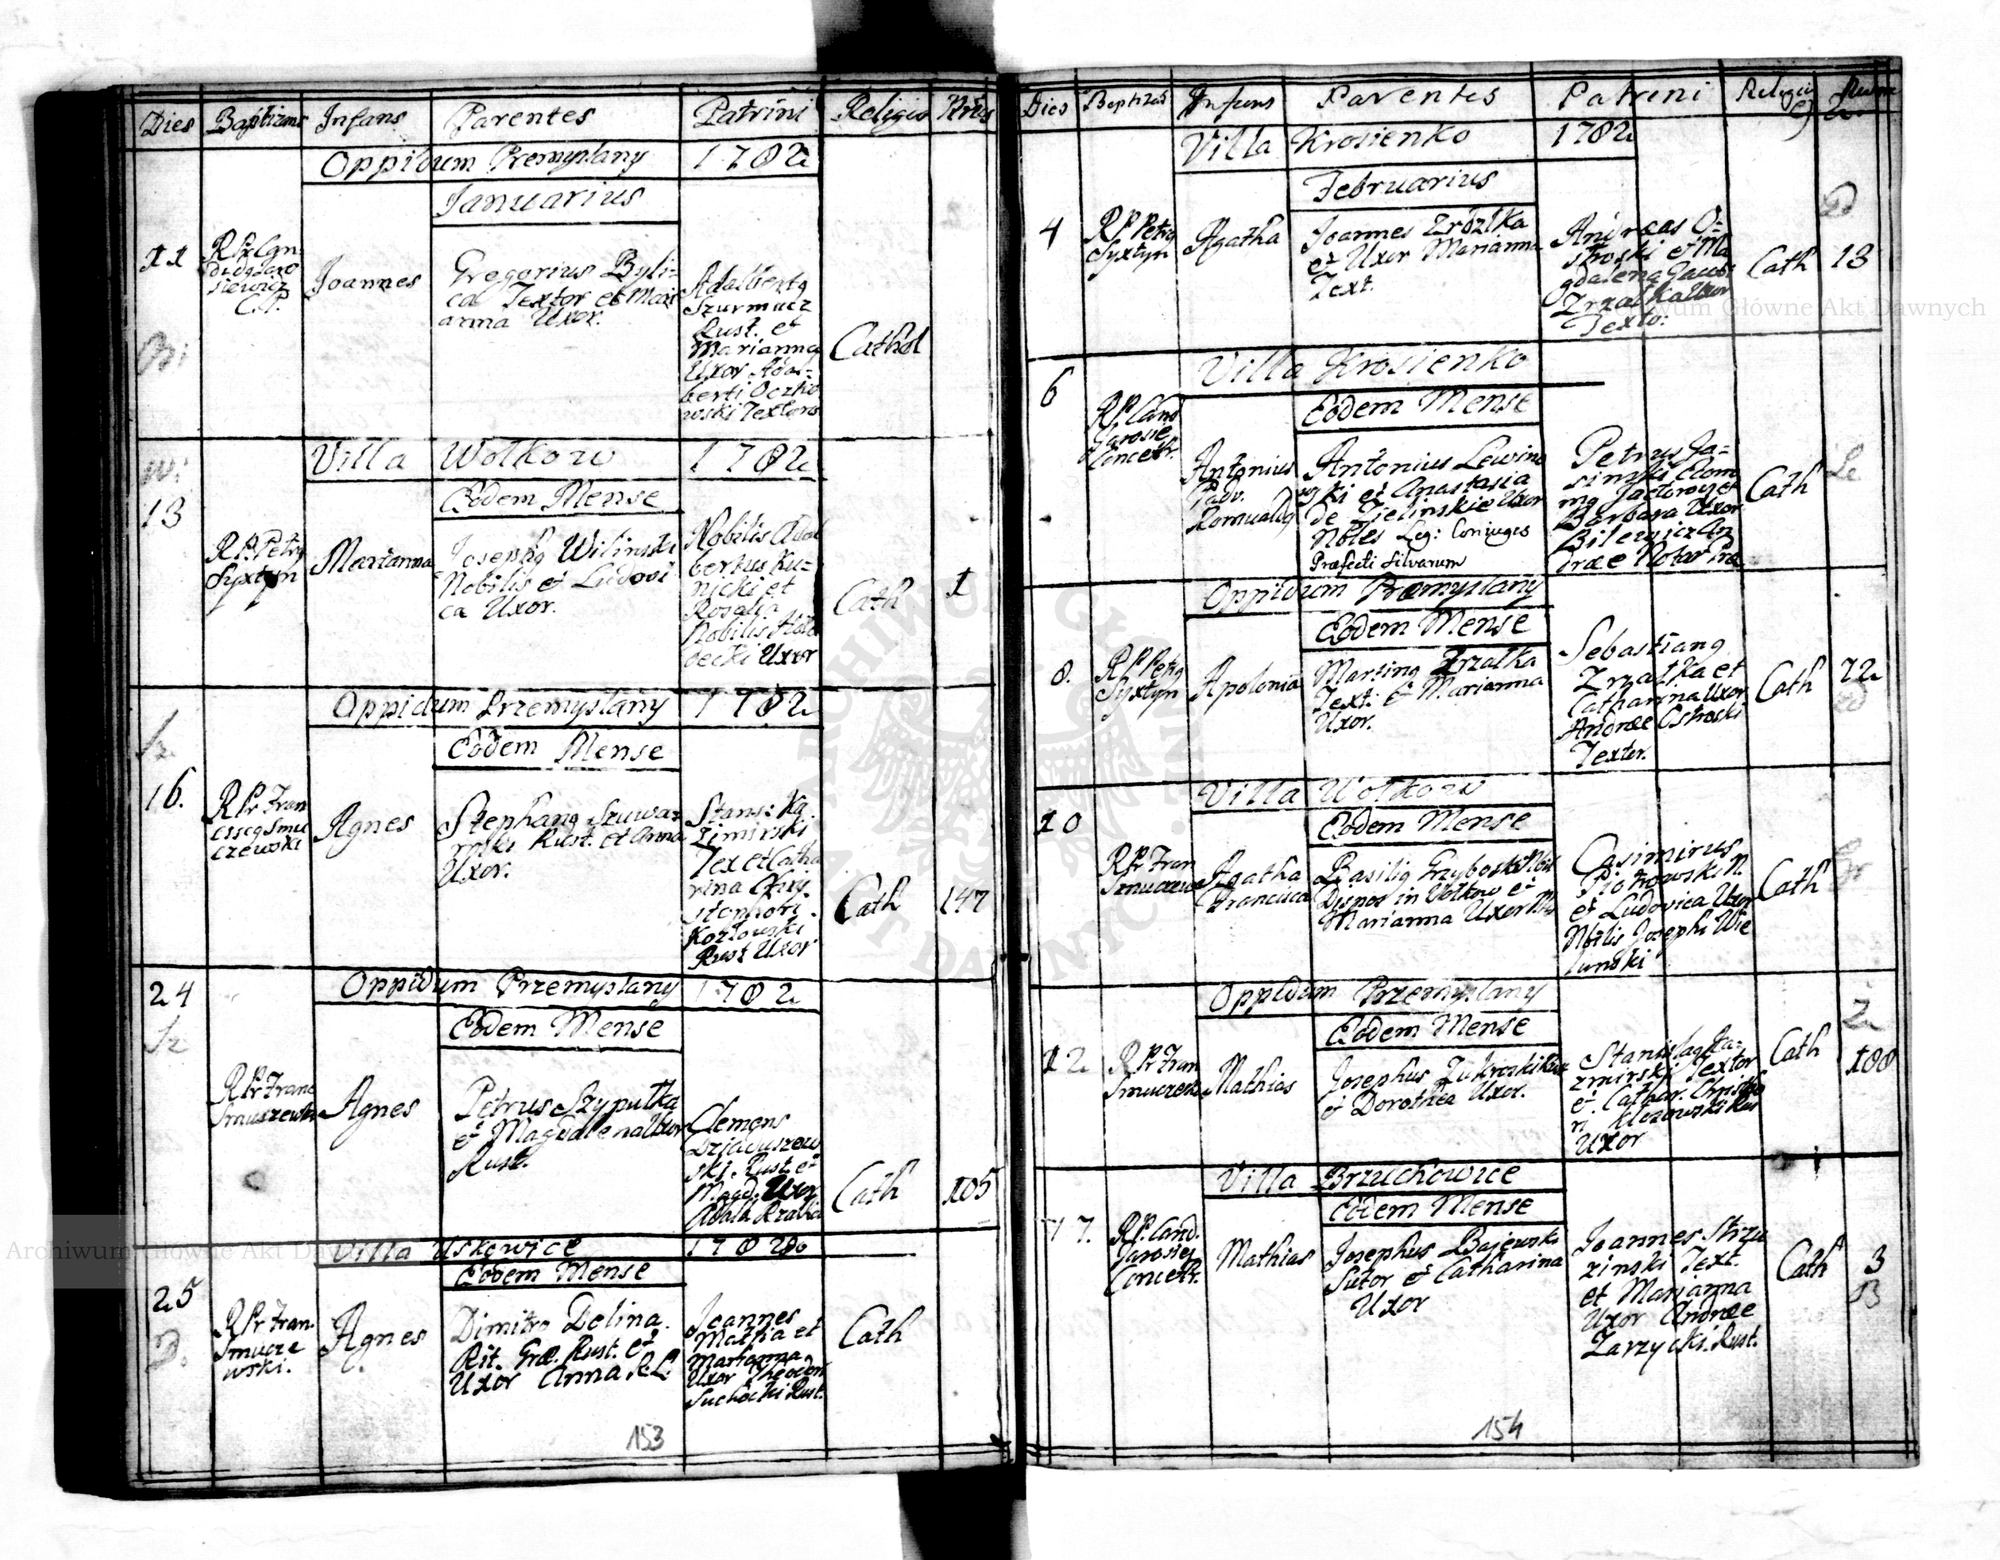 Dies Baptizans Infans Parentes Patrini Religio Nrus
Oppidum Premyslany 1782
Januarius
11
Joannes
Gregorius Byli-
ca Textor et Mari
anna Uxor.
Adalbertq
Szurmacz
Rust. et
Marianna
Uxor Adal-
berti Oczko
wski Textoris
Cathol
Villa Wolkow 1782
Eodem Mense
13
R.P. Petrq
Syxtyn
Marianna
Josephq Wilinski
Nobilis et Ludovi
ca Uxor.
Nobilis Adal
bertus Ku-
nicki et
Rosalia
Nobilis
decki Uxor
Cath
1
Oppidum Przemyslany 1782
Eodem Mense
16.
R Pr Fran
ciscq Smu
czewski
Agnes
Stephanq Szuwar
noski Rust. et Anna
Uxor.
Stans: Ka
zimirski
Tex et Catha
rina Chry
stophori
Kozlowski
Rust Uxor
Cath
147
Oppidum Przemyslany 1782
Eodem Mense
24
R Pr Franc
Smuszewski
Agnes
Petrus Szypulka
et Magdalena Uxor
Rust.
Clemens
Rust. et
Magd. Uxor
Cath
105
Villa Uskowice 1782
Eodem Mense
25
R Pr Fran.
Smucze
wski.
Agnes
Dimitro Dolina
Rit. Græ. Rust. et
Uxor Anna R.L.
Joannes
Matha et
Marianna
Uxor Theodori
Suchocki Rust.
Cath
153
Dies Baptizas Infans Parentes Patrini Religio
Villa Krosienko 1782
Februarius
4
R.P. Petrq
Syxtyn
Agatha
Joannes Zrozlka
et Uxor Marianna
Text.
Andreas O-
stroski et Ma
gdalena
Zrzalka Uxor
Texto.
Cath
13
Villa Krosienko
Eodem Mense
6
R.P. Cand
Jarosie
Concetr.
Antonius
Padv.
Romualdq
Antonius Lewino
wski et Anastasia
de Zielinskie Uxor
Nobles Leg: Coniuges
Præfecti silvarum
Petrus Ja-
sinski
et
Barbara Uxor
An
dræe Notar
Cath
Oppidum Præmyslany
Eodem Mense
8.
R.P. Petrq
Syxtyn
Apolonia
Martinq Zrzalka
Text: et Marianna
Uxor.
Sebastianq
Zrzalka et
Catharina Uxor
Andreæ Ostroski
Textor.
Cath
72
Villa Wolkow
Eodem Mense
10
R Pr Fran
Agatha
Francisca
Basiliq Grzyboski
Dispos in Volkow et
Marianna Uxor
Casimirus
Piotrowski N.
et Ludovica Uxor
Nobilis Josephi Wie
lunski
Cath
Oppidum Przemyslany
Eodem Mense
12.
R Pr Fran
Mathias
Josephus Zukroski
et Dorothea Uxor.
Stanislaq Ka-
zmirski Textor
et Cathar. Christop
Uxor
Cath
2
108
Villa Brzuchowice
Eodem Mense
17.
R.P. Cand.
Jarosiey
Concetr.
Mathias
Josephus Bajewski
Sutor et Catharina
Uxor
Joannes Strzu
zinski Text.
et Marianna
Uxor Andreæ
Zarzycki Rust.
Cath
3
B
154
Archiwum Główne Akt Dawnych
Archiwum Główne Akt Dawnych
ARCHIWUM GŁÓWNE AKT DAWNYCH